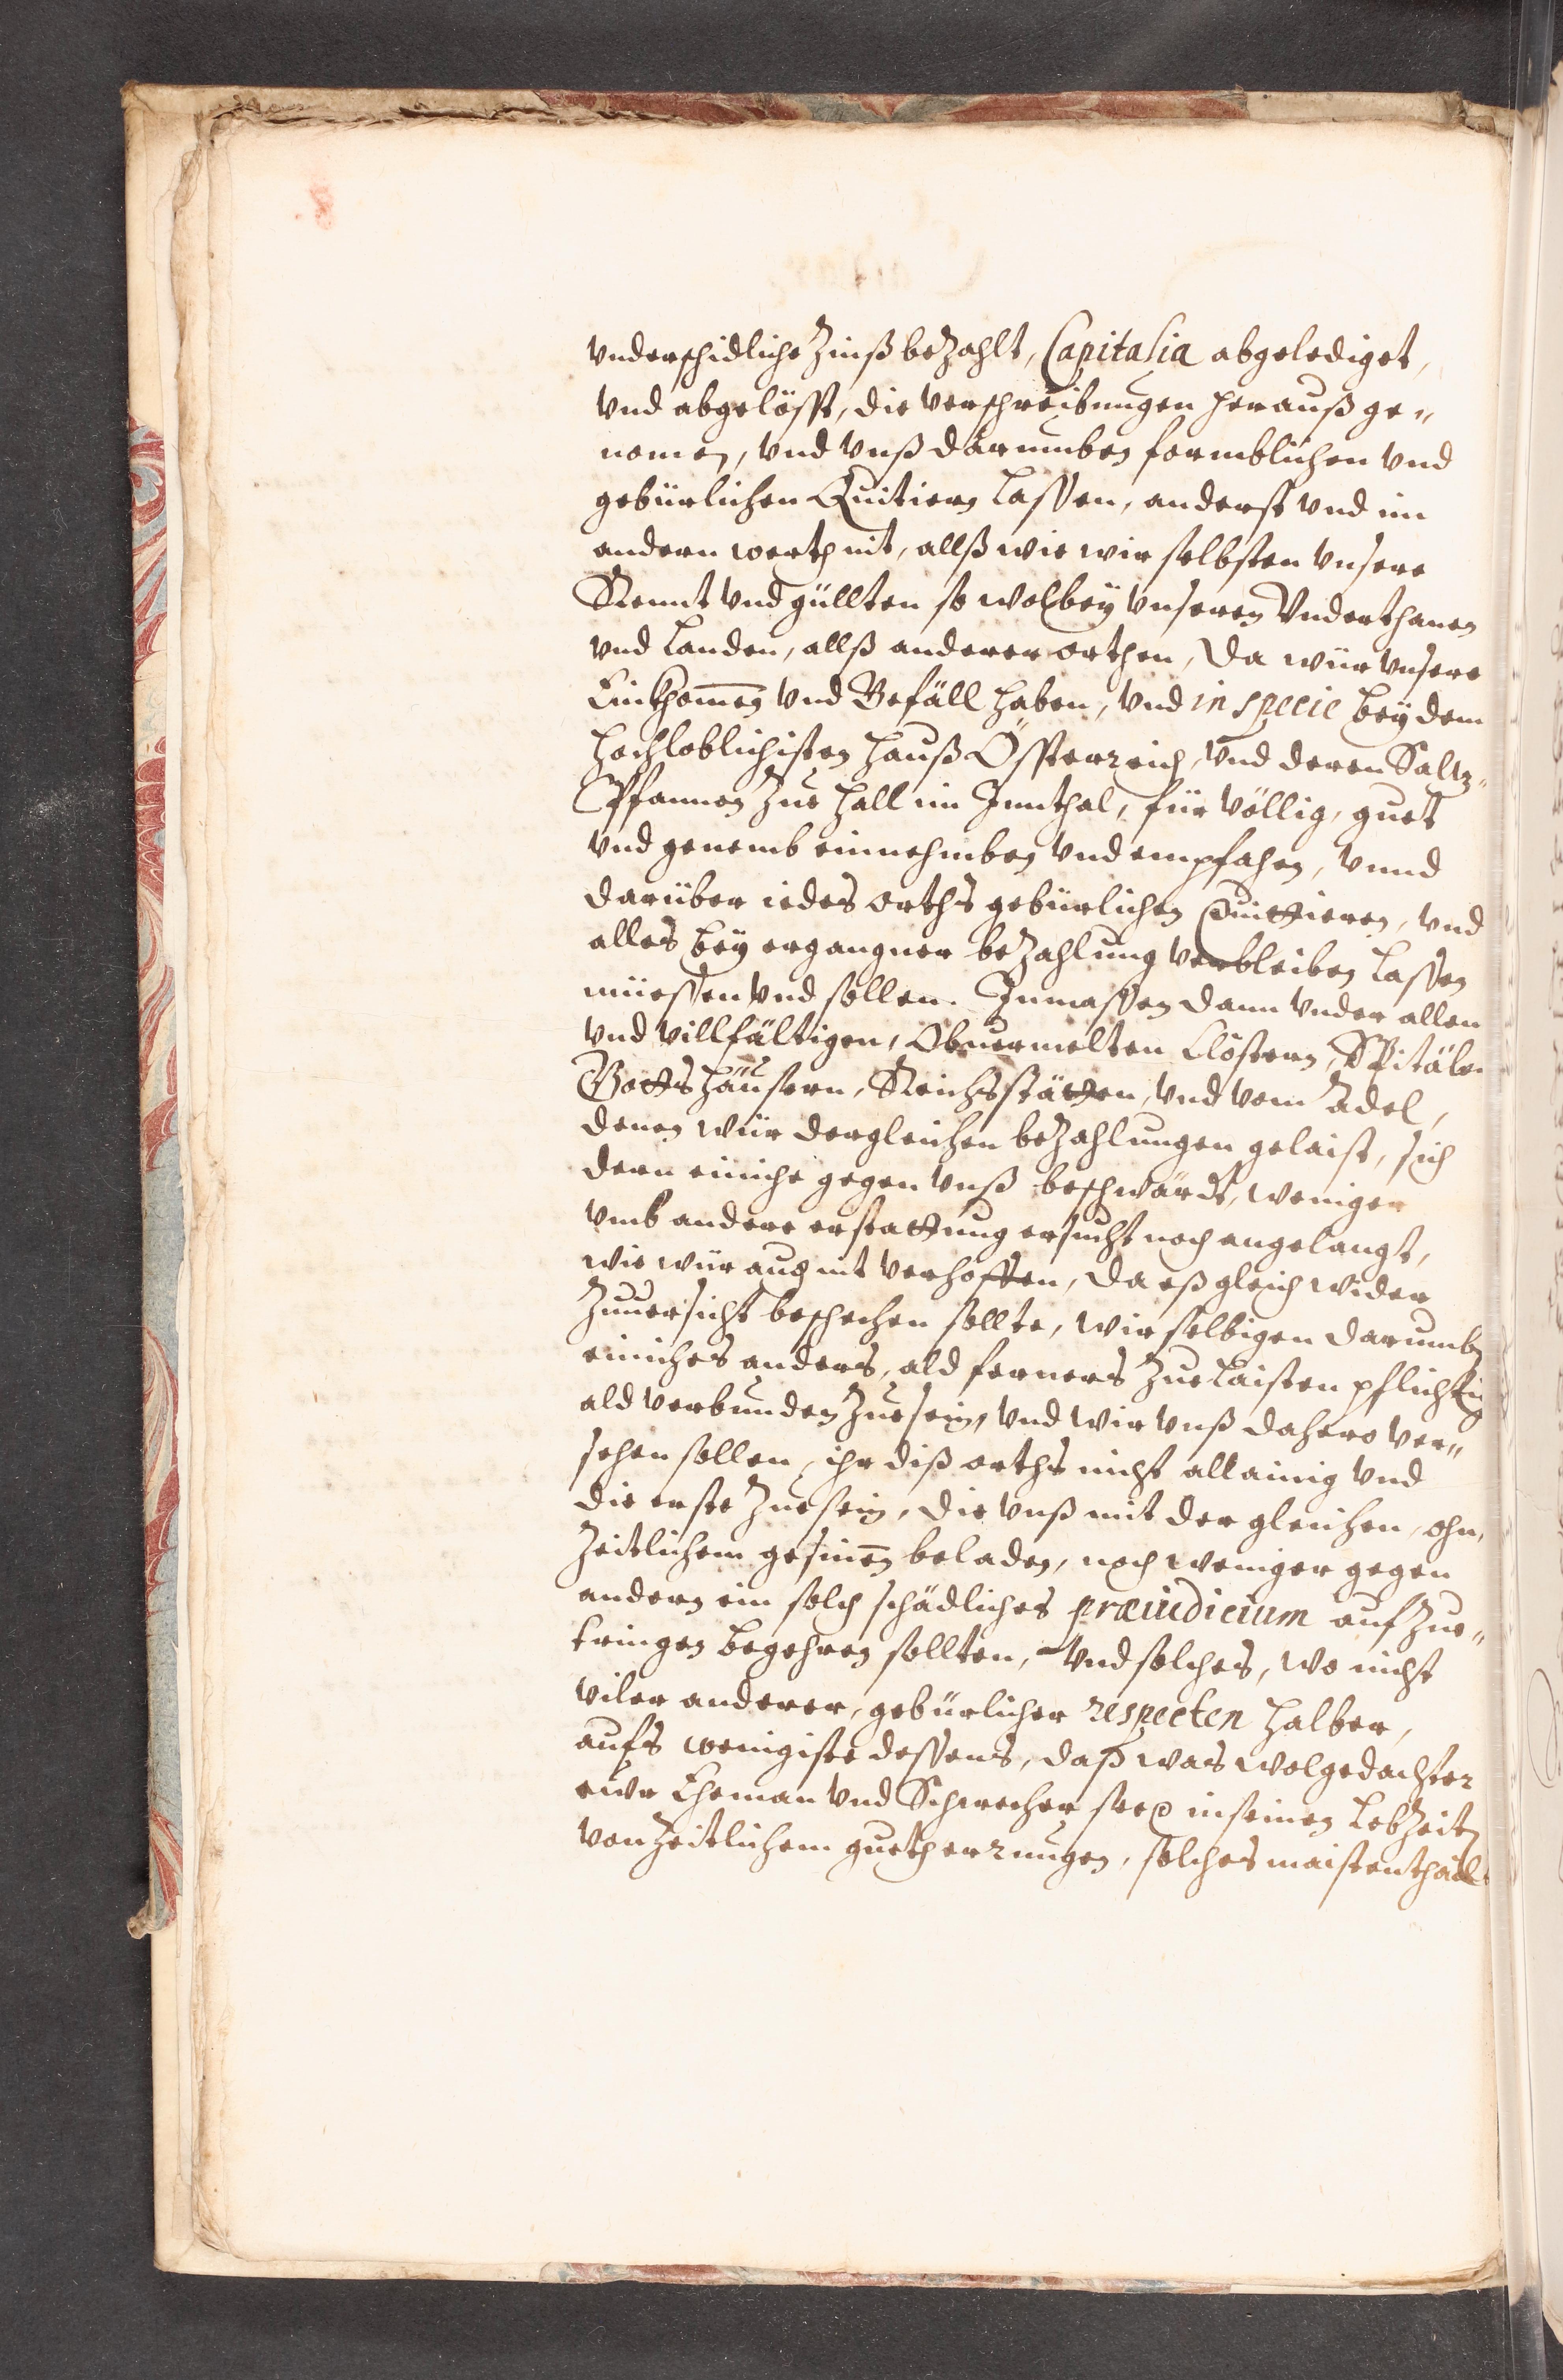 vnderschidliche Zinß bezahlt, Capitalia abgelediget,
vnd abgelößt, die verschreibungen herauß ge¬
nomen, vnd vnß darumben formblichen vnd
gebürlichen Quitiern lassen, anderst vnd im
andern werth nit, allß wie wir selbsten vnsere
Rennt vnd güllten so wol bey vnseren Vnderthanen
vnd Landen, allß anderer orthen, da wür vnsere
Einkhomen vnd Gefäll haben, vnd in specie bey dem
hochloblichisten Hauß Össterreich, vnd deren Saltz¬
Pfannen Zue Hall im Innthal, für völlig, guet
vnd genemb einnehmben vnd empfahen, vnnd
darüber iedes orths gebürlichen Quittieren, vnd
alles bey ergangner bezahlung verbleiben lassen
müessen vnd sollen. Inmassen dann vnder allen
vnd villfältigen, Obuermelten Clöstern, Spitälen
Gottshäusern, Reichsstätten, vnd vom Adel,
denen wür dergleichen bezahlungen gelaist, sich
deren einiche gegen vnß beschwärdt, weniger
vmb andere erstattung ersucht noch angelangt,
wie wür auch nit verhoffen, da eß gleich wider
Zuuersicht beschechen sollte, wir selbigen darumben
einiches anders, ald ferners Zue laisten pflichtig
ald verbunden Zue sein, vnd wir vnß dahero ver¬
sehen sollen, ihr diß orths nicht allainig vnd
die erste Zue sein, die vnß mit der gleichen, ohn,
Zeitlichem gesinnen beladen, noch weniger gegen
andern ein solch schädliches præiudicium auf Zue¬
tringen begehren sollten, vnd solches, wo nicht
viler anderer, gebürlicher respecten halber,
aufs wenigiste dessens, daß was wolgedachter
ewr Eheman vnd Schwecher seel in seinen Lebzeiten
von Zeitlichem gueth errungen, solches maistenthails